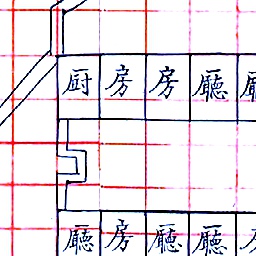 厨房房廳
廳房廳廳